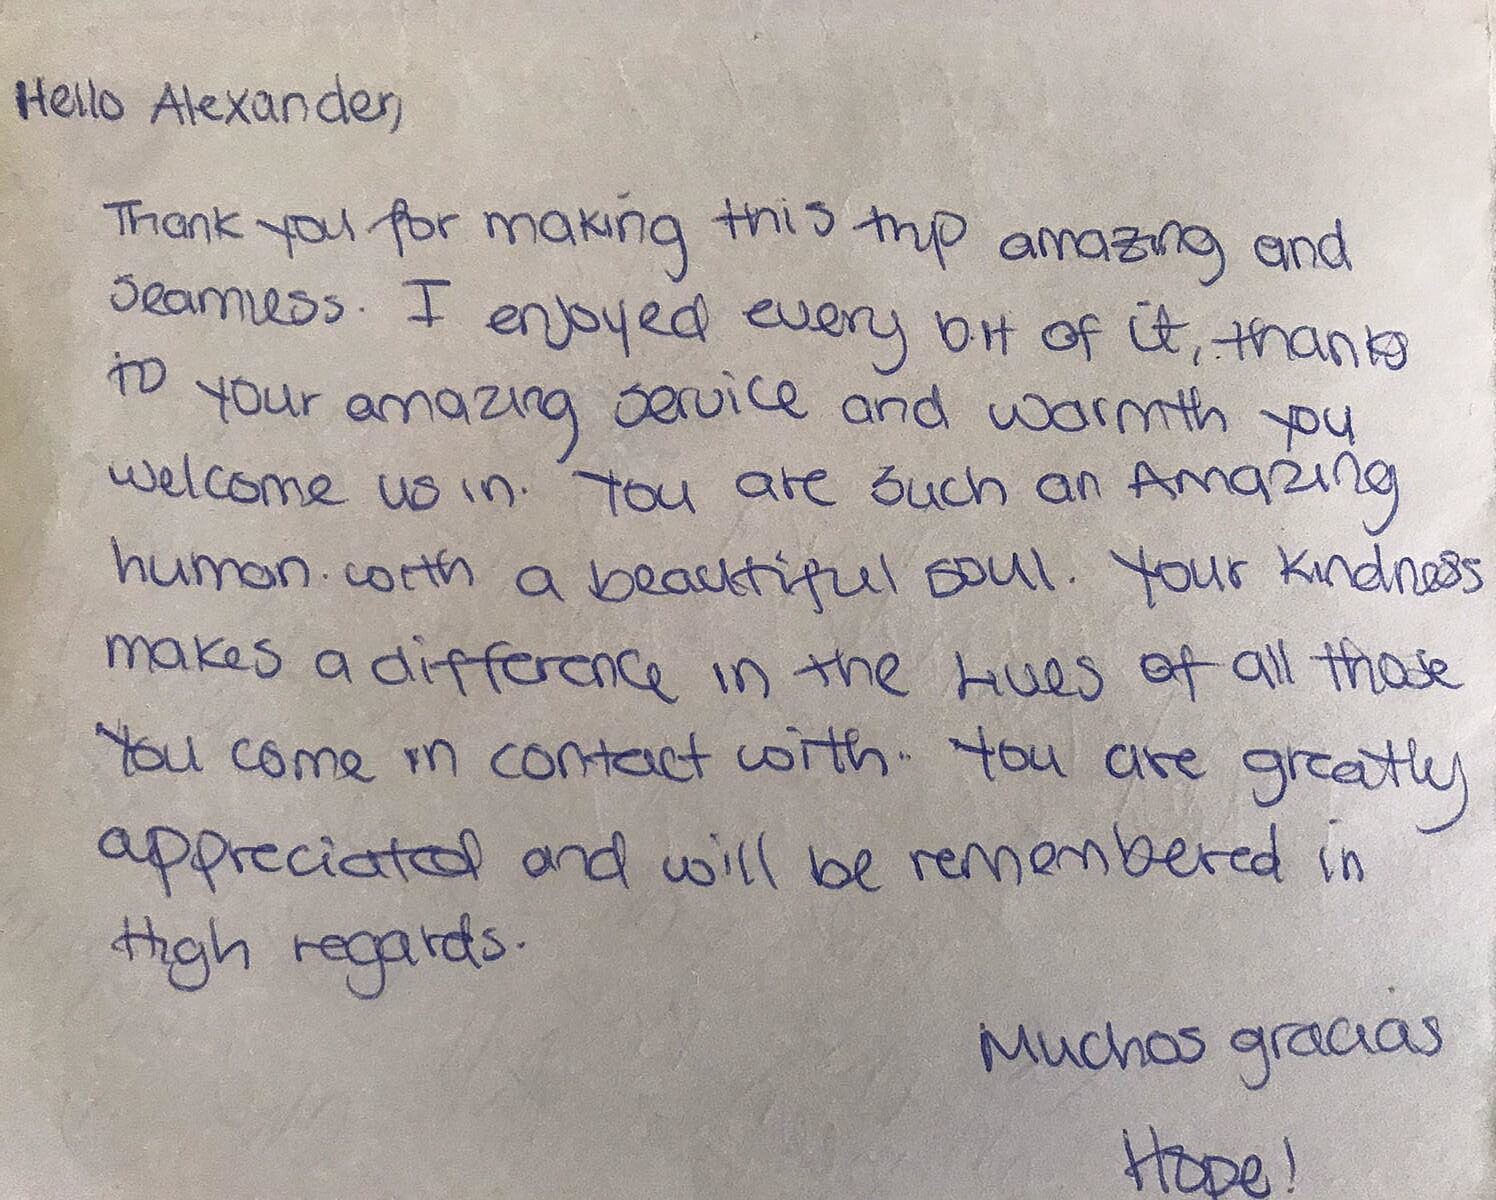 Hello Alexander,
Thank you for making this trip amazing and
seamless. I enjoyed every bit of it, thanks
to your amazing service and warmth you
welcome us in. You are such an Amazing
human with a beautiful soul. Your kindness
makes a difference in the lives of all those
you come in contact with. You are greatly
appreciated and will be remembered in
High regards.
Muchos gracias
Hope!